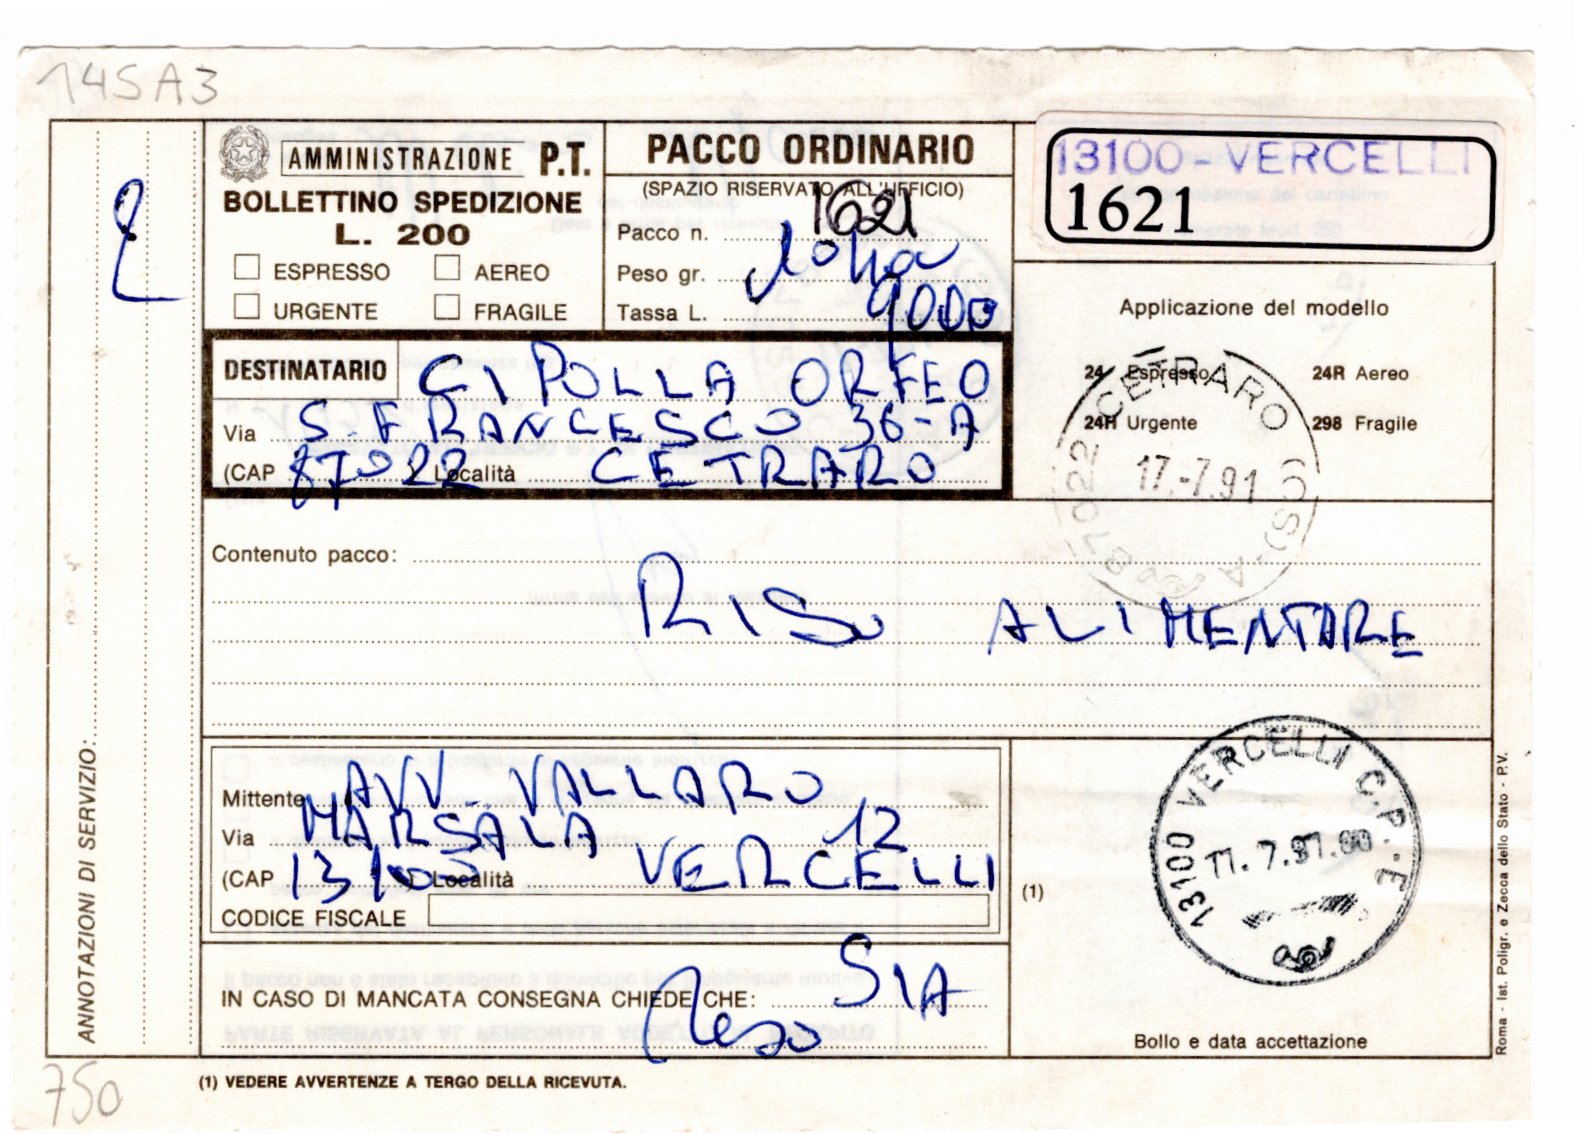 14SA3
AMMINISTRAZIONE P.T.
BOLLETTINO SPEDIZIONE
L. 200
ESPRESSO AEREO
URGENTE FRAGILE
PACCO ORDINARIO
(SPAZIO RISERVATO ALL'UFFICIO)
Pacco n. 1621
Peso gr.
Tassa L. 9000
13100-VERCELLI
1621
Applicazione del modello
24 Espresso 24R Aereo
24H Urgente 298 Fragile
87022 CETRARO (CS)
17.-7.91
DESTINATARIO CIPOLLA ORFEO
Via S. FRANCESCO 36-A
(CAP 87022) Località CETRARO
Contenuto pacco:
RISO ALIMENTARE
Mittente AVV. VALLARO
Via MARSALA 12
(CAP 13100) Località VERCELLI
CODICE FISCALE
IN CASO DI MANCATA CONSEGNA CHIEDE CHE: SIA
Reso
(1)
13100 VERCELLI C.P.-E
11.7.91.
Bollo e data accettazione
ANNOTAZIONI DI SERVIZIO:
Roma - Ist. Poligr. e Zecca dello Stato - P.V.
750
(1) VEDERE AVVERTENZE A TERGO DELLA RICEVUTA.